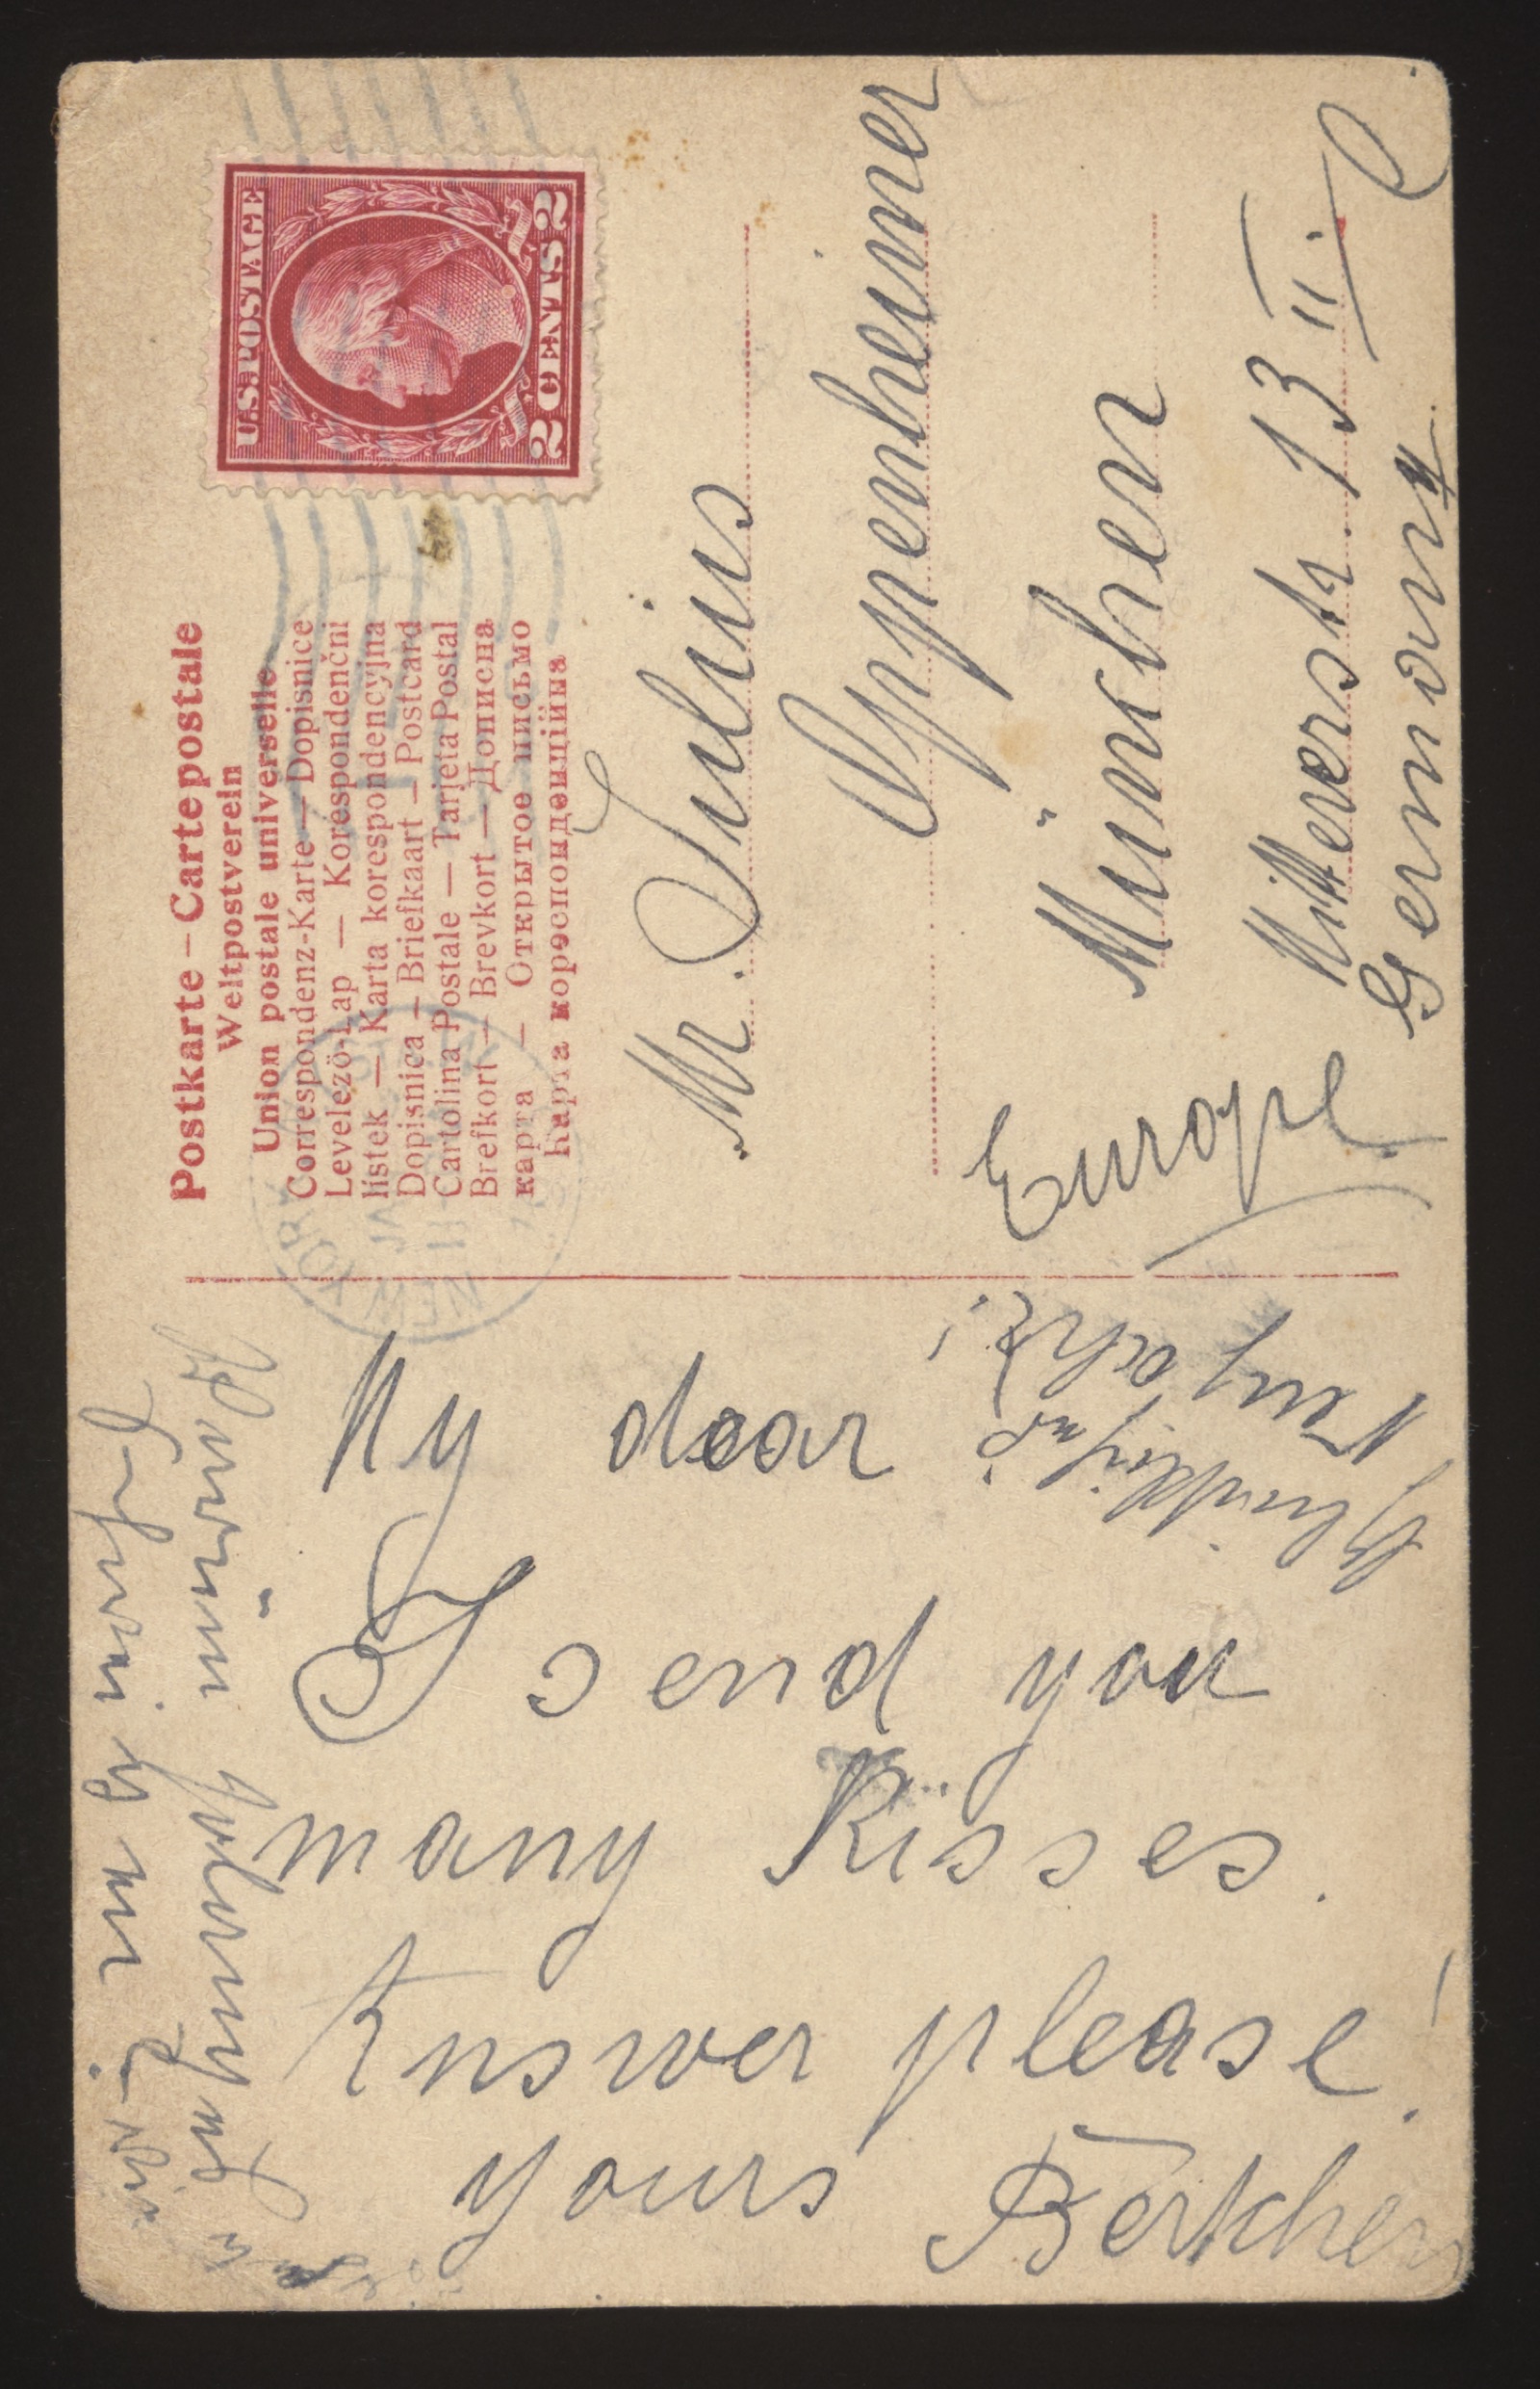 Postkarte – Carte postale
Weltpostverein
Union postale universelle
Correspondenz-Karte — Dopisnice
Levelező-Lap — Korespondenční
lístek — Karta korespondencyjna
Dopisnica — Briefkaart — Postcard
Cartolina Postale — Tarjeta Postal
Brefkort — Brevkort — Дописна
карта — Открытое письмо
Карта кореспонденційна
U.S. POSTAGE
2 CENTS 2
NEW YORK
JAN
Mr. Julius
Oppenheimer
München
Mittererstr. 13 II
Germany
Europe
My dear
I send you
many Kisses.
Answer please!
yours Bertchen